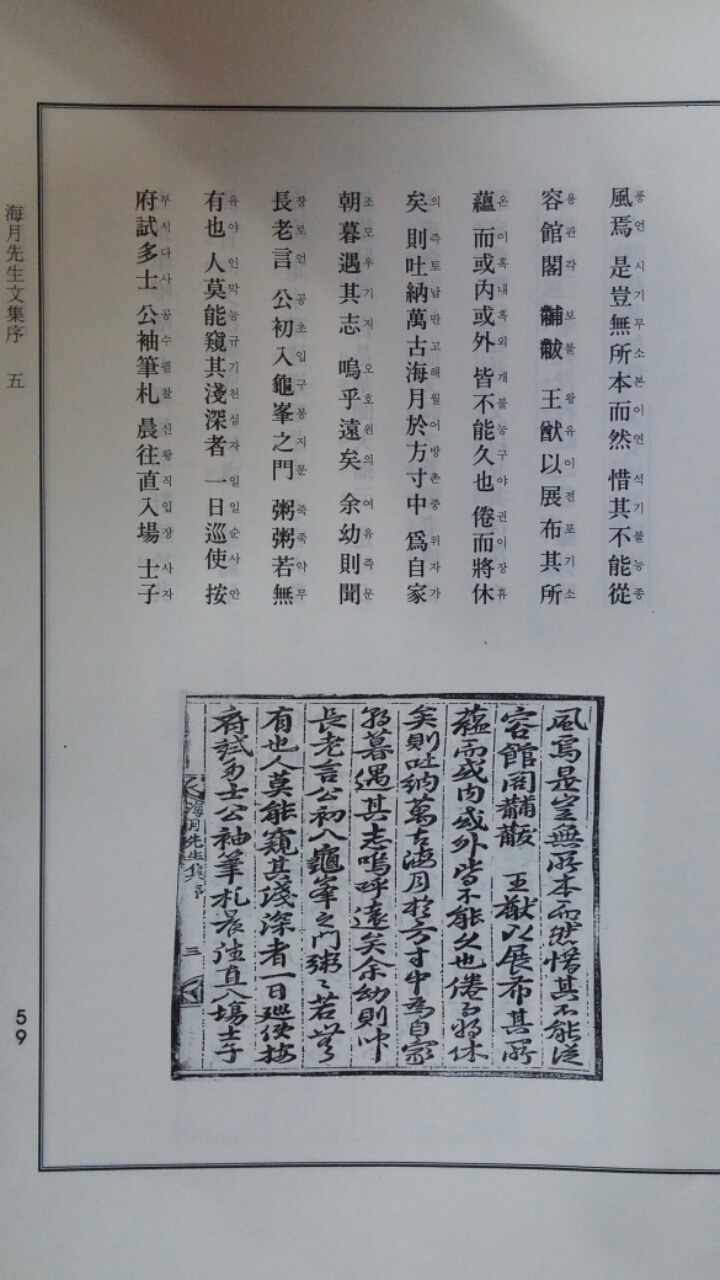 風焉 是豈無所本而然 惜其不能從
풍언 시기무소본이연 석기불능종
容館閣 黼黻 王猷以展布其所
용관각 보불 왕유이전포기소
蘊 而或內或外 皆不能久也 倦而將休
온 이혹내혹외 개불능구야 권이장휴
矣 則吐納萬古海月於方寸中 爲自家
의 즉토납만고해월어방촌중 위자가
朝暮遇其志 嗚乎遠矣 余幼則聞
조모우기지 오호원의 여유즉문
長老言 公初入龜峯之門 粥粥若無
장로언 공초입구봉지문 죽죽약무
有也 人莫能窺其淺深者 一日巡使 按
유야 인막능규기천심자 일일순사 안
府試多士 公袖筆札 晨往直入場 士子
부시다사 공수필찰 신왕직입장 사자
風焉是豈無所本而然惜其不能從
容館閣黼黻 王猷以展布其所
蘊而或內或外皆不能久也倦而將休
矣則吐納萬古海月於方寸中為自家
朝暮遇其志嗚呼遠矣余幼則聞
長老言公初入龜峯之門粥〻若無
有也人莫能窺其淺深者一日巡使按
府試多士公袖筆札晨往直入場士子
海月先生集序 三
海月先生文集序 五
59